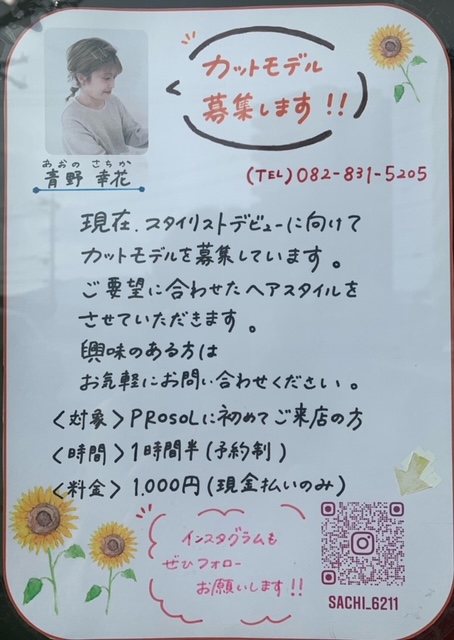 カットモデル
募集します!!
あおの さちか
青野 幸花
(TEL) 082-831-5205
現在、スタイリストデビューに向けて
カットモデルを募集しています。
ご要望に合わせたヘアスタイルを
させていただきます。
興味のある方は
お気軽にお問い合わせください。
<対象> PROSOLに初めてご来店の方
<時間> 1時間半(予約制)
<料金> 1.000円(現金払いのみ)
インスタグラムも
ぜひフォロー
お願いします!!
SACHI_6211